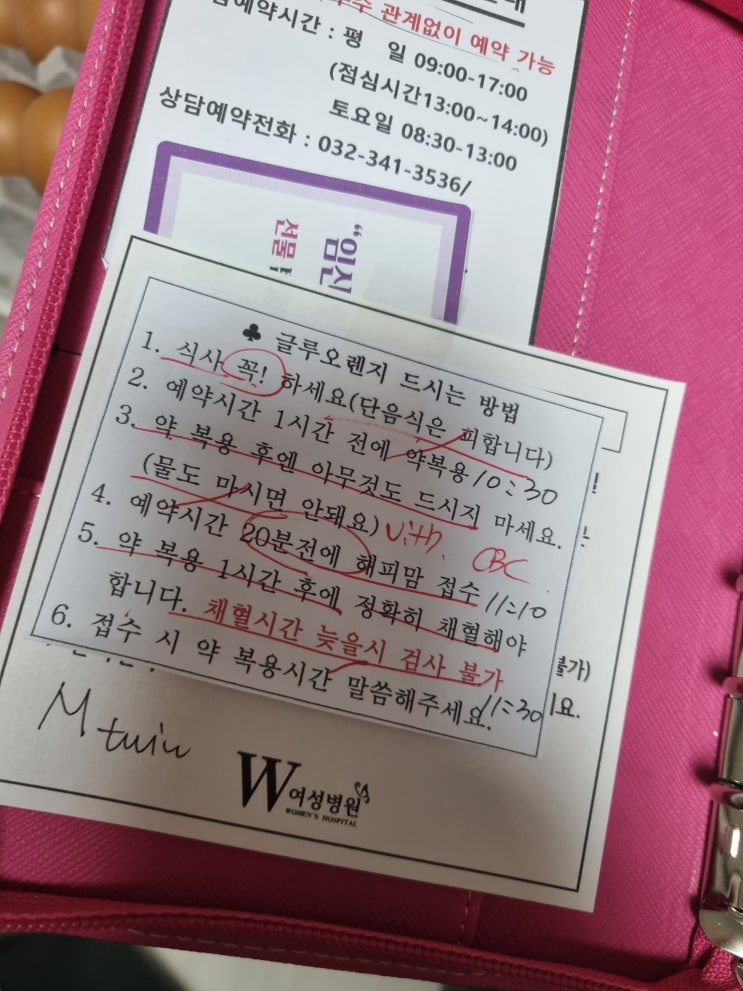 관계없이 예약 가능
예약시간 : 평 일 09:00-17:00
(점심시간13:00~14:00)
토요일 08:30-13:00
상담예약전화 : 032-341-3536/
“임신
선물
♣ 글루오렌지 드시는 방법
1. 식사 꼭! 하세요(단음식은 피합니다)
2. 예약시간 1시간 전에 약복용 10:30
3. 약 복용 후엔 아무것도 드시지 마세요.
(물도 마시면 안돼요) with CBC
4. 예약시간 20분전에 해피맘 접수 11:10
5. 약 복용 1시간 후에 정확히 채혈해야
합니다. 채혈시간 늦을시 검사 불가
6. 접수 시 약 복용시간 말씀해주세요. 11:30
불가)
요.
M twin
W여성병원
WOMEN'S HOSPITAL